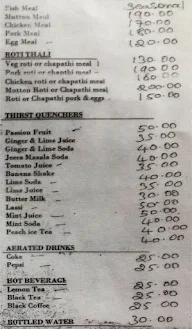 Fish Meal Seasonal
Mutton Meal 190.00
Chicken Meal 170.00
Pork Meal 180.00
Egg Meal 120.00
ROTI THALI
Veg roti or chapathi meal 130.00
Pork roti or chapathi 190.00
Chicken roti or chapathi meal 160.00
Mutton Roti or Chapathi meal 200.00
Roti or Chapathi pork & eggs 150.00
THIRST QUENCHERS
Passion Fruit 50.00
Ginger & Lime Juice 35.00
Ginger & Lime Soda 40.00
Jeera Masala Soda 40.00
Tomato Juice 35.00
Banana Shake
Lime Soda 40.00
Lime Juice 35.00
Butter Milk 30.00
Lassi 50.00
Mint Juice 40.00
Mint Soda 40.00
Peach ice Tea 40.00
AERATED DRINKS
Coke 25.00
Pepsi 25.00
HOT BEVERAGE
Lemon Tea 25.00
Black Tea 25.00
Black Coffee 25.00
BOTTLED WATER 30.00